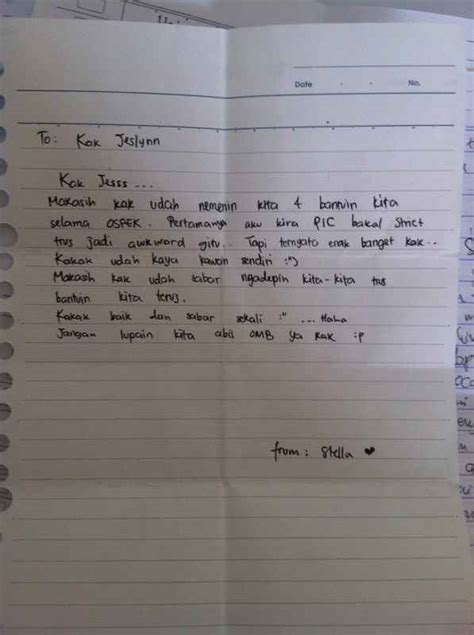 Date - - No.
To: Kak Jeslynn
Kak Jesss ...
Makasih kak udah nemenin kita & bantuin kita
selama OSPEK. Pertamanya aku kira PIC bakal strict
trus jadi awkward gitu... Tapi ternyata enak banget kak..
Kakak udah kaya kawan sendiri :")
Makasih kak udah sabar ngadepin kita-kita trus
bantuin kita terus.
Kakak baik dan sabar sekali :" ... Haha
Jangan lupain kita abis OMB ya kak :p
from: Stella ♥